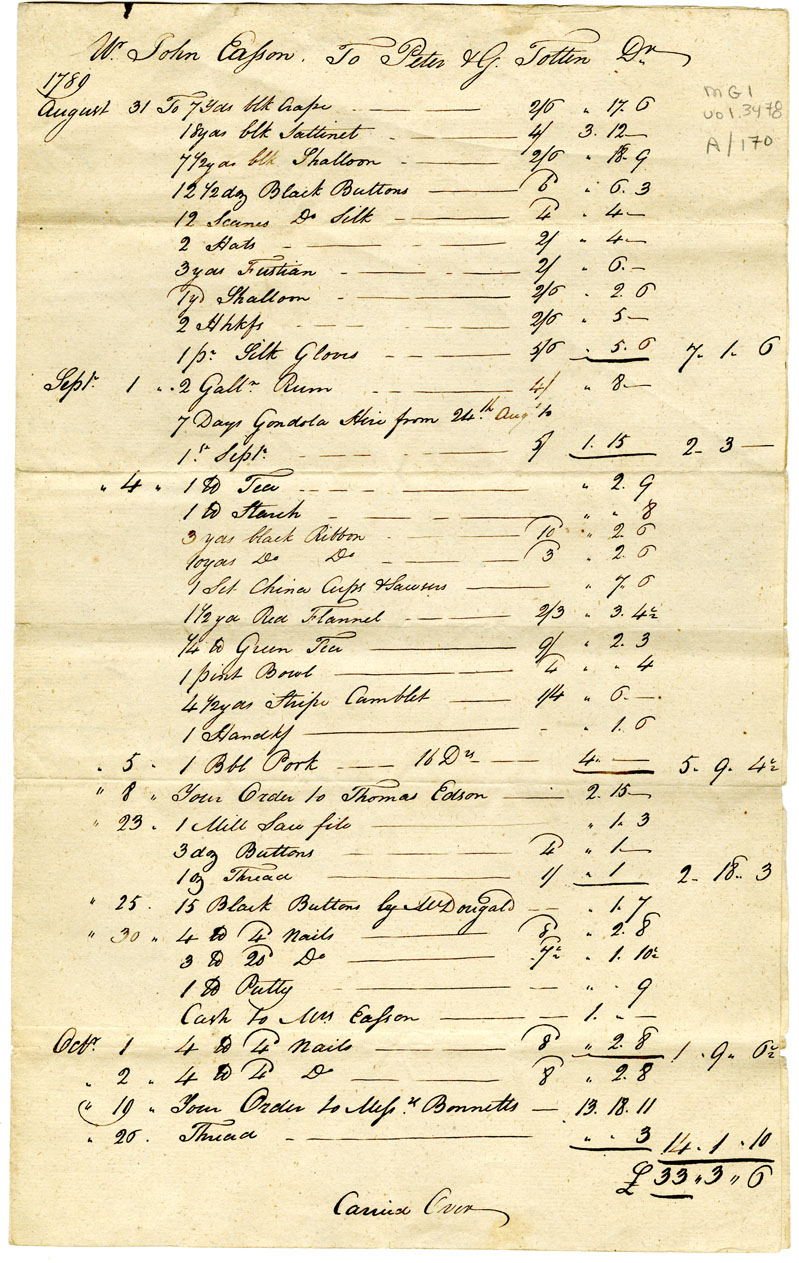 Mr John Easson. To Peter & G. Totten Dr
1789
MG1
vol. 3478
A/170
August 31 To 7 yds blk Crape 2/6 " 17. 6
18 yds blk Sattinet 4/ 3. 12 —
7 1/2 yds blk Shalloon 2/6 " 18. 9
12 1/2 dz Black Buttons 6 " 6. 3
12 Scanes Do Silk 4 " 4 —
2 Hats 2/ " 4 —
3 yds Fustian 2/ " 6. —
1 yd Shalloon 2/6 " 2. 6
2 Hhkfs 2/6 " 5 —
1 pr Silk Gloves 5/6 " 5. 6 7. 1. 6
Septr 1 " 2 Gallns Rum 4/ " 8 —
7 Days Gondola Hire from 24th Augt to
1st Septr 5/ 1. 15 2. 3 —
" 4 " 1 lb Tea " 2. 9
1 lb Starch " " 8
3 yds black Ribbon 10 " 2. 6
10 yds Do Do 3 " 2. 6
1 Set China Cups & Sawsers " 7. 6
1 1/2 yd Red Flannel 2/3 " 3. 4 1/2
1/4 lb Green Tea 9/ " 2. 3
1 pint Bowl 4 " " 4
4 1/2 yds Stripe Camblet 1/4 " 6 —
1 Handkf " 1. 6
" 5 " 1 Bbl Pork 16 Drs 4 " — 5. 9. 4 1/2
" 8 " Your Order to Thomas Edson 2. 15 —
" 23 " 1 Mill Saw file " 1. 3
3 dz Buttons 4 " 1 —
1 oz Thread 1/ " 1 2. 18. 3
" 25. 15 Black Buttons by McDougald " 1. 7
" 30 " 4 lb 4d Nails 8 " 2. 8
3 lb 20d Do 7 1/2 " 1. 10 1/2
1 lb Putty " " 9
Cash to Mrs Easson 1. " —
Octr 1 4 lb 4d Nails 8 " 2. 8 1. 9. 6 1/2
" 2 " 4 lb 4d Do 8 " 2. 8
" 19 " Your Order to Messrs Bonnetts 13. 18. 11
" 26. Thread " " 3 14. 1. 10
£ 33 " 3 " 6
Carried Over